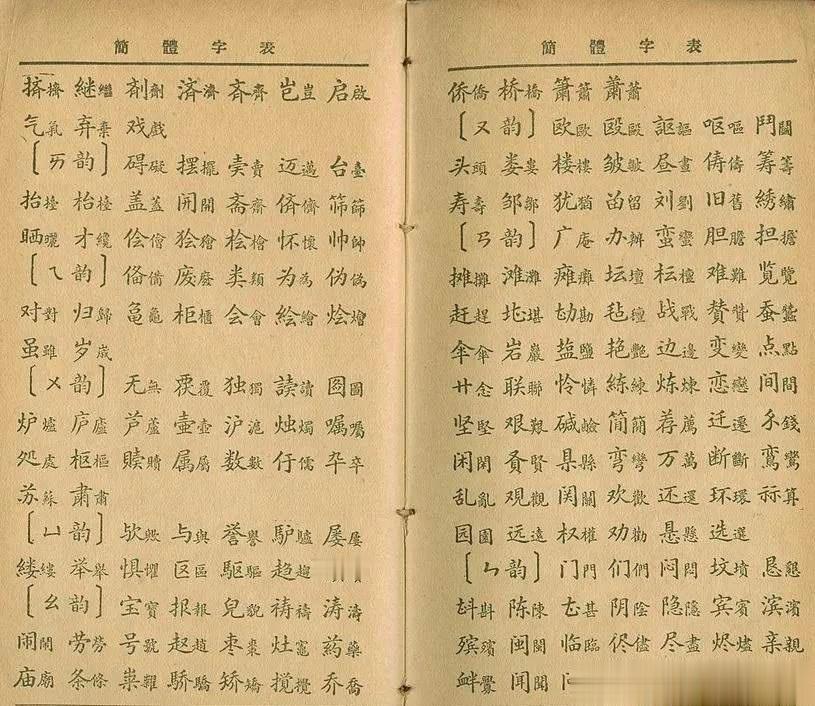 簡體字表
挤擠 継繼 剤劑 済濟 斉齊 岂豈 启啟
气氣 弃棄 戏戲
〔ㄞ韵〕 碍礙 摆擺 卖賣 迈邁 台臺
抬擡 枱檯 盖蓋 开開 斋齋 侪儕 筛篩
晒曬 才纔 侩儈 狯獪 桧檜 怀懷 帅帥
〔ㄟ韵〕 俻備 废廢 类類 为為 伪偽
对對 归歸 龟龜 柜櫃 会會 絵繪 烩燴
虽雖 岁歲
〔ㄨ韵〕 无無 覆 独獨 読讀 图圖
炉爐 庐廬 芦蘆 壶壺 沪滬 烛燭 嘱囑
処處 枢樞 赎贖 属屬 数數 儒 卒
苏蘇 肃肅
〔ㄩ韵〕 欤歟 与與 誉譽 馿驢 屡屢
缕縷 举舉 惧懼 区區 駆驅 趋趨
〔ㄠ韵〕 宝寶 报報 皃貌 祷禱 涛濤
闹鬧 劳勞 号號 赵趙 枣棗 灶竈 药藥
庙廟 条條 粜糶 骄驕 矫矯 搅攪 乔喬
簡體字表
侨僑 桥橋 箫簫 萧蕭
〔ㄡ韵〕 欧歐 殴毆 謳 呕嘔 鬥鬪
头頭 娄婁 楼樓 皱皺 昼晝 俦儔 筹籌
寿壽 邹鄒 犹猶 畄留 刘劉 旧舊 綉繡
〔ㄢ韵〕 广庵 办辦 蛮蠻 胆膽 担擔
摊攤 滩灘 瘫癱 坛壇 枟檀 难難 览覽
赶趕 堪 勘 毡氈 战戰 賛贊 蚕蠶
伞傘 岩巖 塩鹽 艳艷 边邊 变變 点點
廿念 联聯 怜憐 練 炼煉 恋戀 间間
坚堅 艰艱 碱鹼 简簡 荐薦 迁遷 錢
闲閑 贤賢 县縣 弯彎 万萬 断斷 鸾鸞
乱亂 观觀 関關 欢歡 还還 环環 祘算
园園 远遠 权權 劝勸 悬懸 选選
〔ㄣ韵〕 门門 们們 闷悶 坟墳 恳懇
斟 陈陳 甚 阴陰 隐隱 宾賓 滨濱
殡殯 闽閩 临臨 侭儘 尽盡 烬燼 亲親
衅釁 闻聞